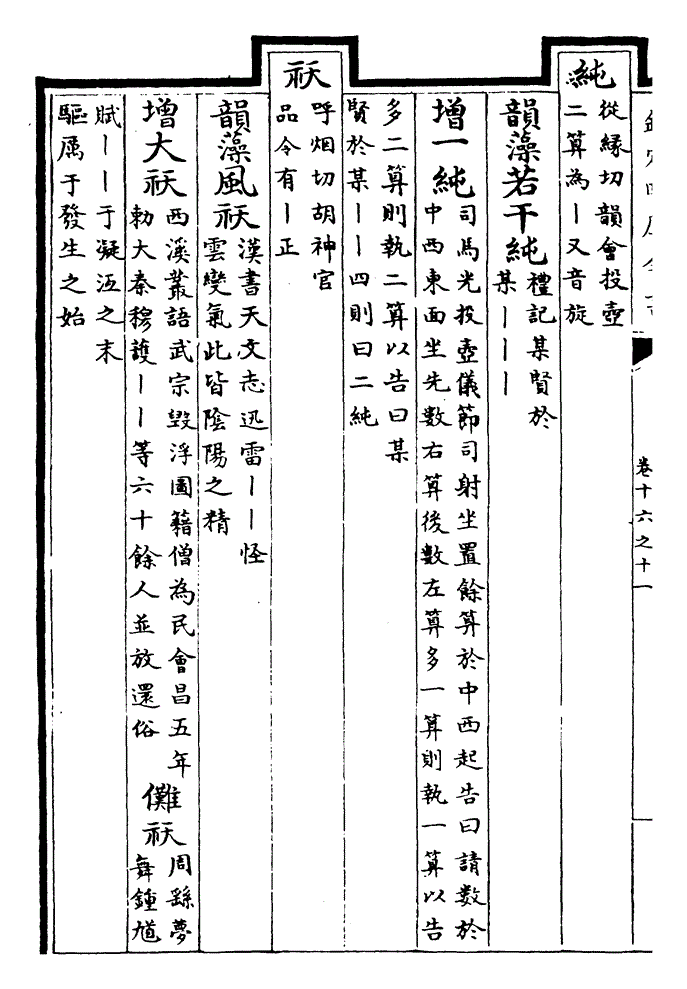 卷十六之十一
純
從縁切韻會投壺
二算為丨又音旋
韻藻若干純
禮記某賢於
某丨丨丨
增一純
司馬光投壺儀節司射坐置餘算於中西起告曰請數於
中西東面坐先數右算後數左算多一算則執一算以告
多二算則執二算以告曰某
賢於某丨丨四則曰二純
祆
呼烟切胡神官
品令有丨正
韻藻風祆
漢書天文志迅雷丨丨怪
雲變氣此皆陰陽之精
增大祆
西溪叢語武宗毀浮圖籍僧為民會昌五年
勅大秦穆護丨丨等六十餘人並放還俗
儺祆
周繇夢
舞鍾馗
賦丨丨于凝沍之末
驅厲于發生之始